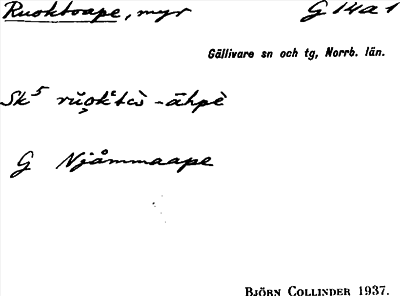 Ruoktoape, myr G 14 a 1
Gällivare sn och tg, Norrb. län.
Sk⁵ rŭọkˈtὰ-āhpè
G Njåmmaape
BJÖRN COLLINDER 1937.